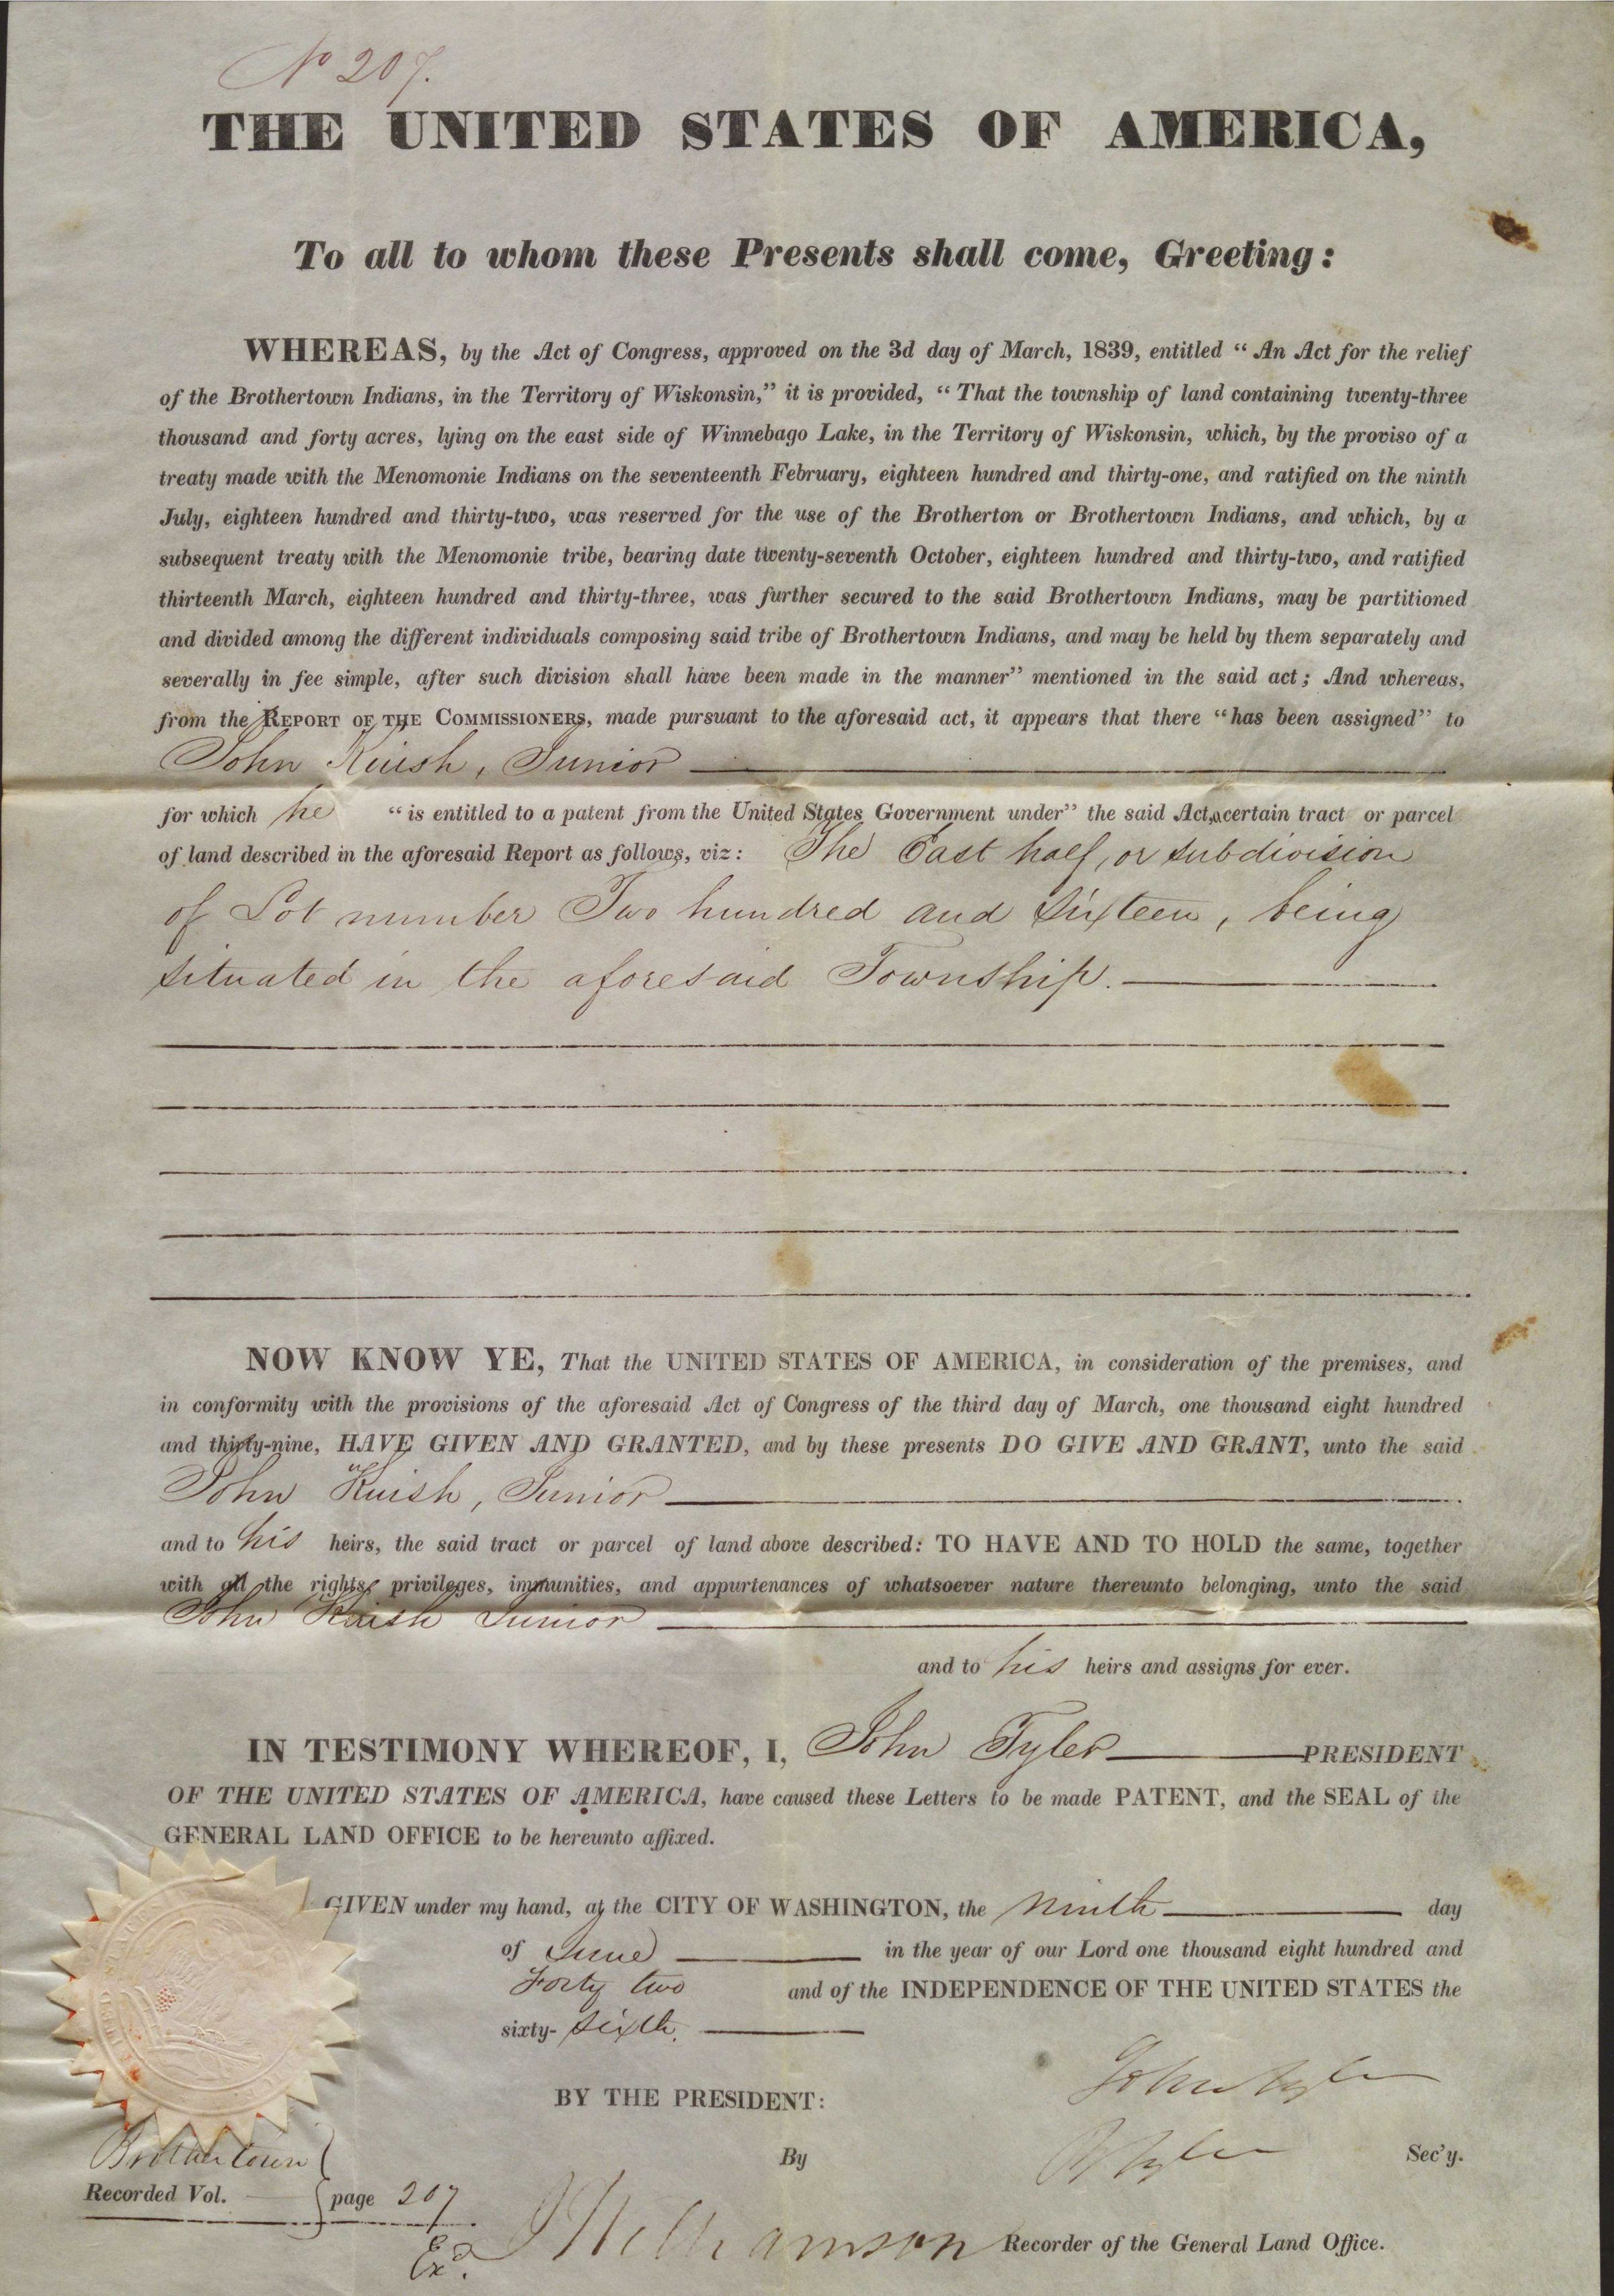 No 207.
THE UNITED STATES OF AMERICA,
To all to whom these Presents shall come, Greeting:
WHEREAS, by the Act of Congress, approved on the 3d day of March, 1839, entitled “ An Act for the relief
of the Brothertown Indians, in the Territory of Wiskonsin,” it is provided, “ That the township of land containing twenty-three
thousand and forty acres, lying on the east side of Winnebago Lake, in the Territory of Wiskonsin, which, by the proviso of a
treaty made with the Menomonie Indians on the seventeenth February, eighteen hundred and thirty-one, and ratified on the ninth
July, eighteen hundred and thirty-two, was reserved for the use of the Brotherton or Brothertown Indians, and which, by a
subsequent treaty with the Menomonie tribe, bearing date twenty-seventh October, eighteen hundred and thirty-two, and ratified
thirteenth March, eighteen hundred and thirty-three, was further secured to the said Brothertown Indians, may be partitioned
and divided among the different individuals composing said tribe of Brothertown Indians, and may be held by them separately and
severally in fee simple, after such division shall have been made in the manner” mentioned in the said act; And whereas,
from the REPORT OF THE COMMISSIONERS, made pursuant to the aforesaid act, it appears that there “has been assigned” to
John Kuish, Junior
for which he “is entitled to a patent from the United States Government under” the said Act, a certain tract or parcel
of land described in the aforesaid Report as follows, viz: The East half, or subdivision
of Lot number Two hundred and Sixteen, being
situated in the aforesaid Township.
NOW KNOW YE, That the UNITED STATES OF AMERICA, in consideration of the premises, and
in conformity with the provisions of the aforesaid Act of Congress of the third day of March, one thousand eight hundred
and thirty-nine, HAVE GIVEN AND GRANTED, and by these presents DO GIVE AND GRANT, unto the said
John Kuish, Junior
and to his heirs, the said tract or parcel of land above described: TO HAVE AND TO HOLD the same, together
with all the rights, privileges, immunities, and appurtenances of whatsoever nature thereunto belonging, unto the said
John Kuish Junior
and to his heirs and assigns for ever.
IN TESTIMONY WHEREOF, I, John Tyler PRESIDENT
OF THE UNITED STATES OF AMERICA, have caused these Letters to be made PATENT, and the SEAL of the
GENERAL LAND OFFICE to be hereunto affixed.
GIVEN under my hand, at the CITY OF WASHINGTON, the ninth day
of June in the year of our Lord one thousand eight hundred and
Forty two and of the INDEPENDENCE OF THE UNITED STATES the
sixty- sixth.
John Tyler
BY THE PRESIDENT:
By R Tyler Sec'y.
Brothertown
Recorded Vol. page 207
Exd. J Williamson Recorder of the General Land Office.